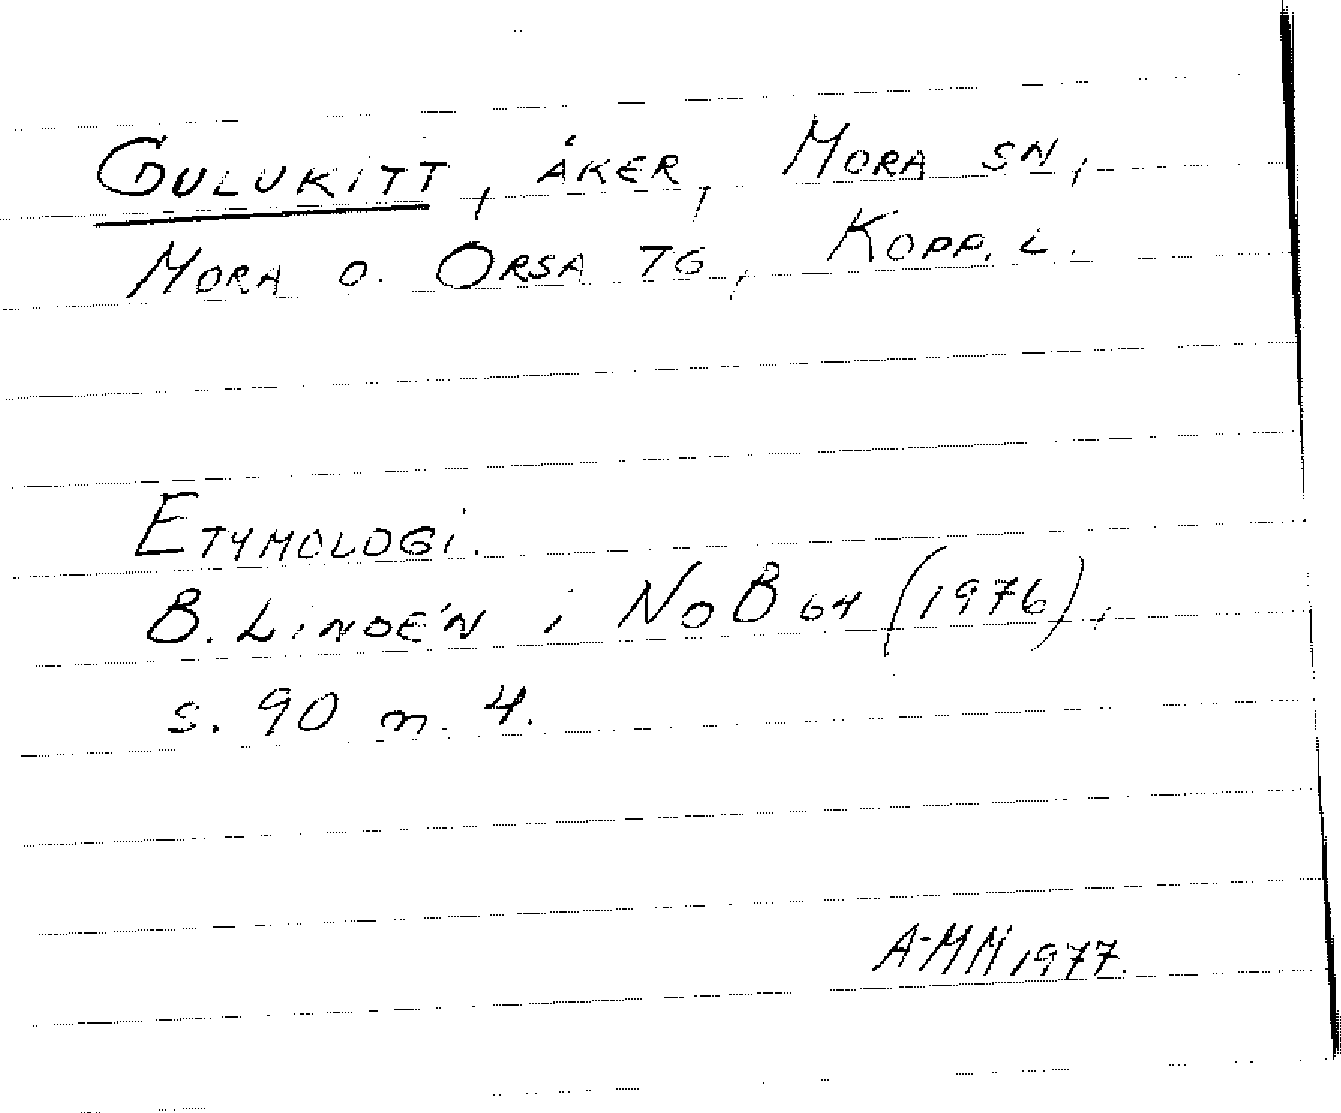 GULUKITT, ÅKER, MORA SN,
MORA O. ORSA TG, KOPP. L.
ETYMOLOGI.
B. LINDÉN i NoB 64 (1976),
s. 90 n. 4.
A-MM 1977.